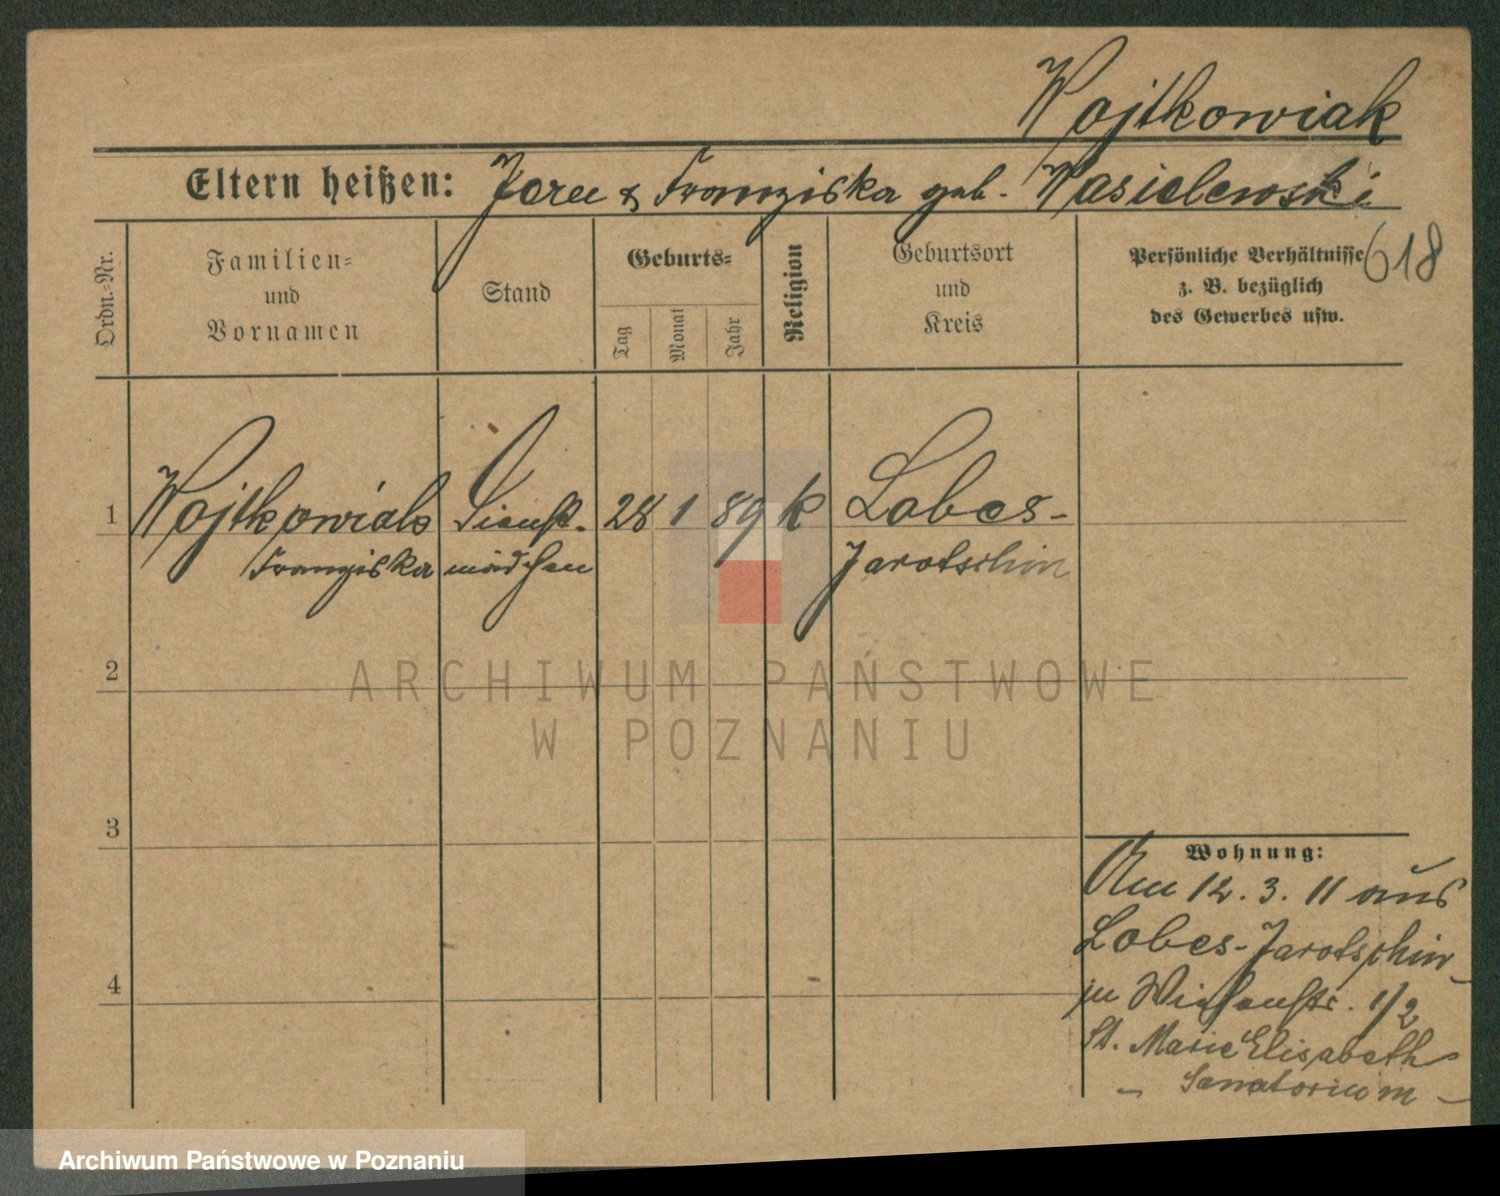 Wojtkowiak
Eltern heißen: & Franziska geb. Wasielewski
618
Ordn.-Nr.
Familien-
und
Vornamen
Stand
Geburts-
Tag
Monat
Jahr
Religion
Geburtsort
und
Kreis
Persönliche Verhältnisse
z. B. bezüglich
des Gewerbes usw.
1 Wojtkowiak Dienst- 28 1 89 k Lobes-
Franziska mädchen Jarotschin
2
3
4
Wohnung:
Am 12. 3. 11 aus
Lobes-Jarotschin
in Wiesenstr. 1/2
St. Marie Elisabeth
- Sanatorium -
ARCHIWUM PAŃSTWOWE
W POZNANIU
Archiwum Państwowe w Poznaniu